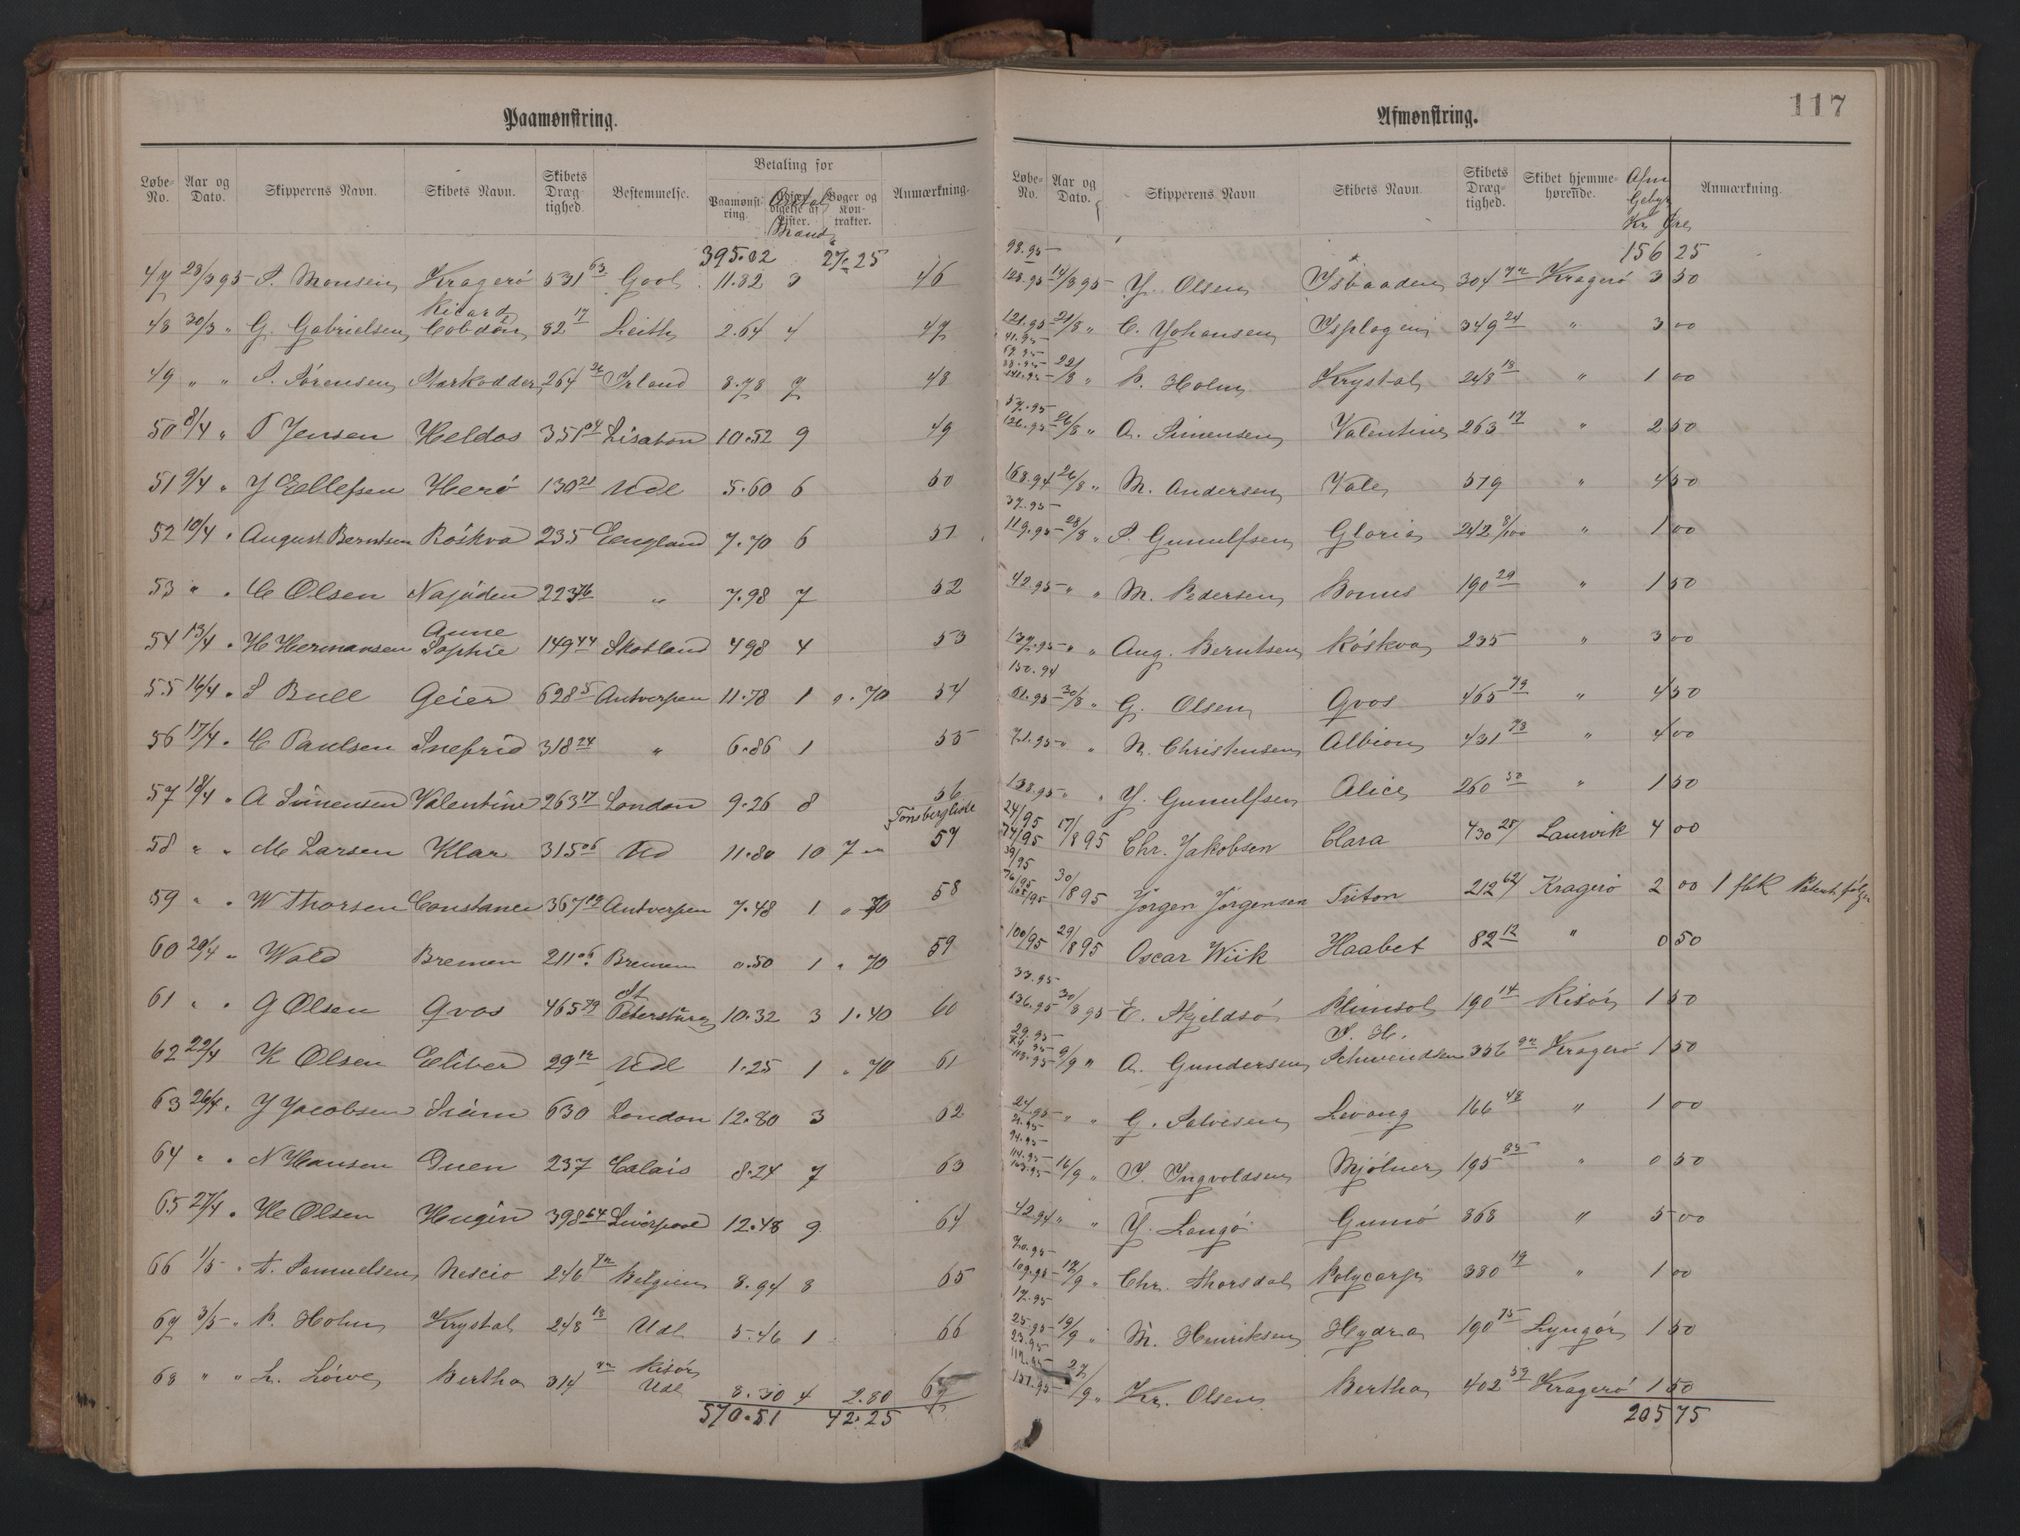 117
Paamønstring.
Løbe-No. Aar og Dato. Skipperens Navn. Skibets Navn. Skibets Drægtighed. Bestemmelse. Betaling for Paamønstring. Antal Mand Bøger og Kontrakter. Anmærkning.
395.02 27.25
47 23/3 95 S. Monsen Kragerö 531 63 Gool 11.82 3 46
48 30/3 " G. Gabrielsen Ricard Cobden 82 17 Leith 2.64 4 47
49 " " S. Sörensen Starkodder 264 26 Irland 8.78 7 48
50 8/4 " T Jensen Heldos 351 04 Lisabon 10.52 9 49
51 9/4 " J Eellefsen Herö 130 21 Udl 5.60 6 50
52 10/4 " August Berntsen Röskva 235 England 7.70 6 51
53 " " C Olsen Najaden 223 76 " 7.98 7 52
54 13/4 " H Hermansen Anne Sophie 149 44 Skotland 4 98 4 53
55 16/4 " S Bull Geier 628 5 Antverpen 11.78 1 " 70 54
56 17/4 " C Paulsen Snefrid 318 24 " 6.86 1 55
57 18/4 " A Simensen Valentine 263 17 London 9.26 8 56
58 " " M Larsen Klar 315 06 Ud 11.80 10 7 " Tönsberg liste 57
59 " " W Thorsen Constance 367 19 Antverpen 7.48 1 " 70 58
60 20/4 " Wold Bremen 211 06 Bremen 0.50 1 " 70 59
61 " " G Olsen Qvos 465 79 St Petersburg 10.32 3 1.40 60
62 22/4 K Olsen Eliber 29 12 Udl 1.25 1 " 70 61
63 26/4 " J Jacobsen 630 London 12.80 3 62
64 " " N Hansen Duen 237 Calais 8.24 7 63
65 27/4 " H Olsen Hugin 398 64 Liverpool 12.48 9 64
66 1/5 " Samuelsen Nescio 246 Belgien 8.94 8 65
67 3/5 " P. Holm Krystal 248 18 Udl 5.46 1 66
68 " " L. Löwe Bertha 314 Risör Udl 8.30 4 2.80 67
570.51 42.25
Afmønstring.
Løbe-No. Aar og Dato. Skipperens Navn Skibets Navn. Skibets Drægtighed. Skibet hjemmehørende. Afm Gebyr Kr Øre Anmærkning.
156 25
98.95 123.95 14/8 95 J. Olsen Isbaaden 304 72 Kragerö 3 50
121.95 21/8 " C. Johansen Isplogen 349 24 " 3 00
41.95 69.95 88.95 141.95 22/8 " P. Holm Krystal 248 18 " 1 00
57.95 126.95 26/8 " A. Simensen Valentine 263 17 " 2 50
168.94 26/8 " M. Andersen Vale 579 " 4 50
37.95 119.95 28/8 " S. Gunulfsen Gloria 242 8/100 " 1 00
42.95 " " M. Pedersen Bonus 190 29 " 1 50
137.95 " " Aug. Berntsen Röskva 235 " 3 00
150.94 61.95 30/8 " G. Olsen Qvos 465 79 " 4 50
71.95 " " N. Christensen Albion 431 73 " 4 00
138.95 " " J. Gunulfsen Alice 260 50 " 1 50
24/95 74/95 17/8 95 Chr. Jakobsen Clara 430 25 Laurvik 4 00
39/95 76/95 105/95 30/8 95 Jörgen Jörgensen Triton 212 62 Kragerö 2 00 1 fbk
100/95 29/8 95 Oscar Wiik Haabet 82 12 " 0 50
33.95 136.95 30/8 95 E. Skjeldsö Plimsol 190 14 Risör 1 50
29.95 113.95 9/9 " A. Gundersen S. H. Schwendsen 356 92 Kragerö 1 50
24.95 21.95 " " G. Salvesen Levang 166 48 " 1 00
94.95 114.95 163.95 16/9 " T. Ingvoldsen Mjölner 195 " 0 50
42.94 " " J. Langö Gunnö 368 " 5 00
70.95 109.95 17/9 " Chr. Thorsdal Polycarp 380 19 " 1 00
17.95 25.95 23.95 19/9 " M. Henriksen Hydra 190 75 Lyngör 1 50
117.95 157.95 27/9 " Kr. Olsen Bertha 402 59 Kragerö 1 50
205 75